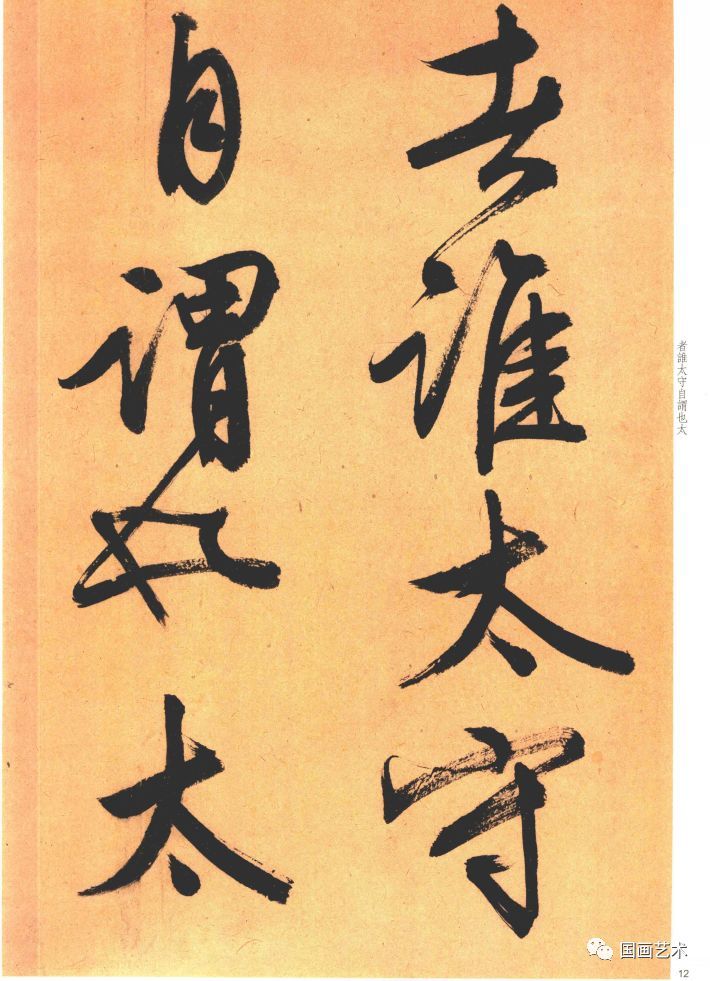 者誰太守
自謂也太
者誰太守自謂也太
国画艺术
12